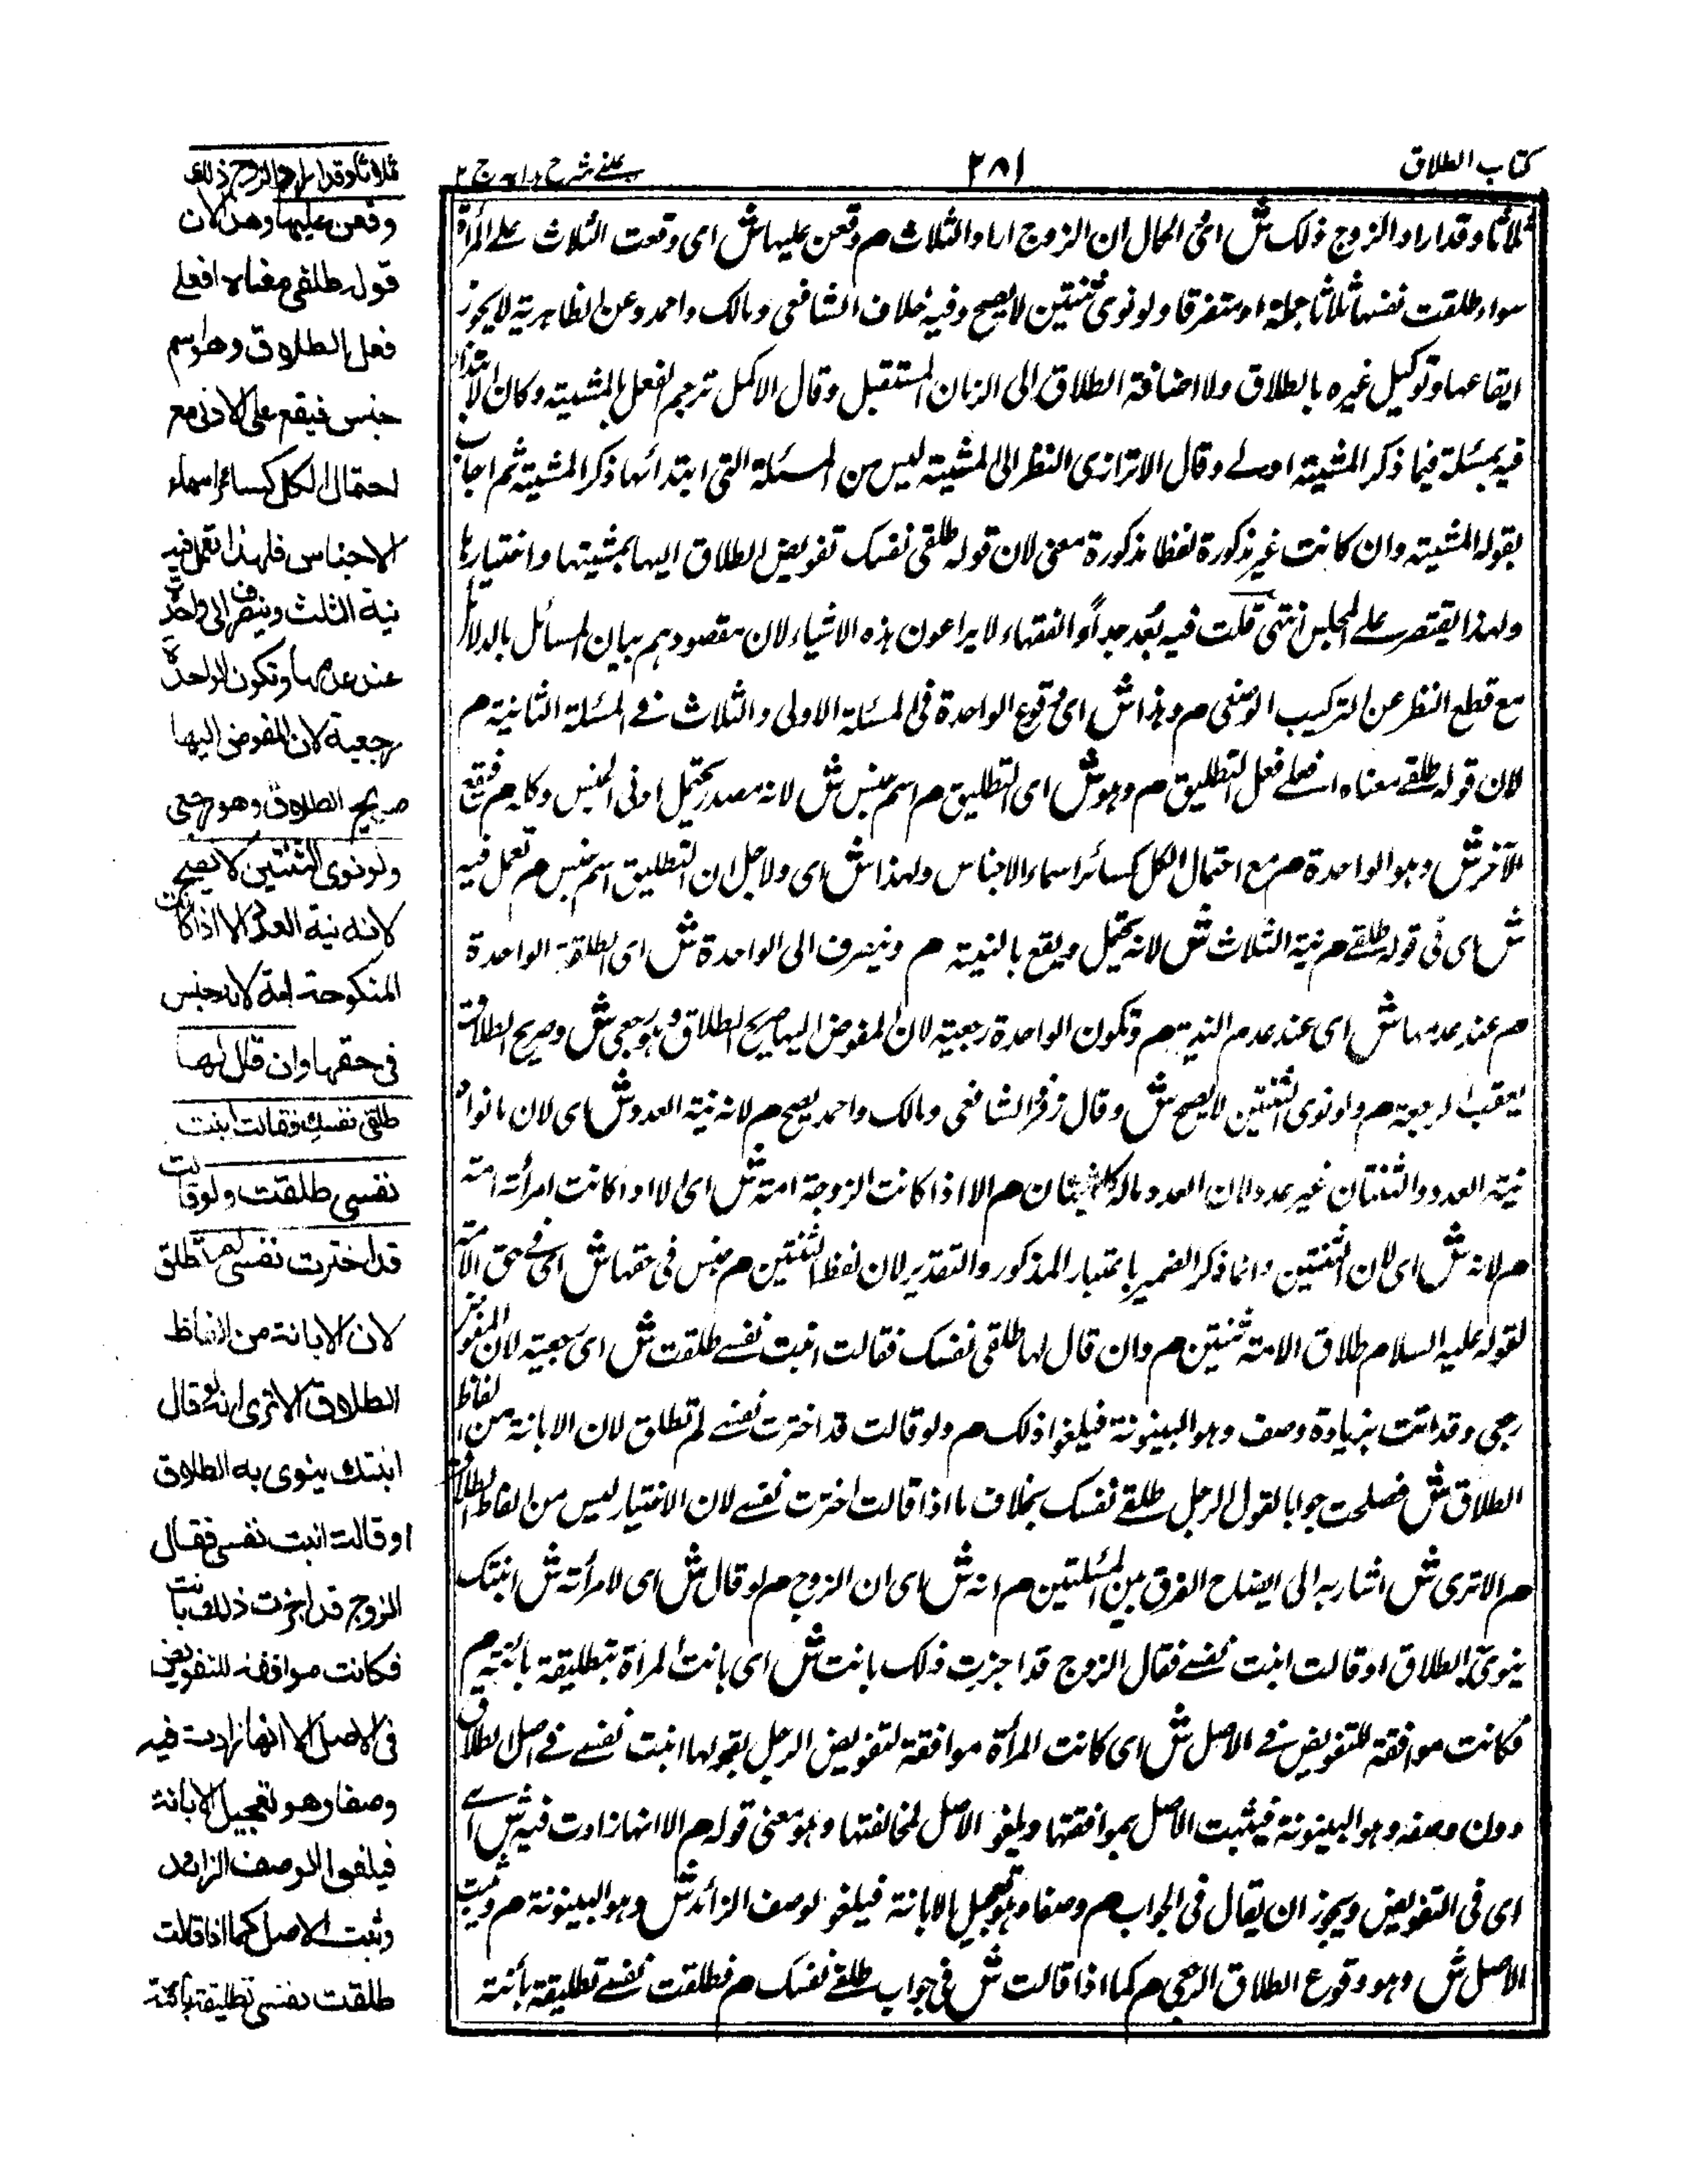 كتاب الطلاق
٢٨١
عينى شرح هدايه ج ٢
ثلاثا وقد اراد الزوج ذلك ش اى والحال ان الزوج اراد الثلاث م وقعن عليها ش اى وقعت الثلاث على المرأة
سواء طلقت نفسها ثلاثا جملة او متفرقا ولو نوى ثنتين لا يصح وفيه خلاف الشافعى ومالك واحمد وعن الظاهرية لا يجوز
ايقاعها وتوكيل غيره بالطلاق ولا اضافة الطلاق الى الزمان المستقبل وقال الاكمل ترجم لفعل بالمشيته وكان الابتداء
فيه بمسئلة فيها ذكر المشيته اولى وقال الاترازى النظر الى المشيته ليس من المسئلة التى ابتدائها ذكر المشيته ثم اجاب
بقوله المشيته وان كانت غير مذكورة لفظا مذكورة معنى لان قوله طلقى نفسك تفويض الطلاق اليها بمشيتها واختيارها
ولهذا يقتصر على المجلس انتهى قلت فيه بُعد جداً والفقهاء لا يراعون هذه الاشياء لان مقصودهم بيان المسائل بالدلائل
مع قطع النظر عن التركيب الوضعى م وهذا ش اى وقوع الواحدة فى المسئلة الاولى والثلاث فى المسئلة الثانية م
لان قوله طلقى معناه افعلى فعل التطليق م وهو ش اى التطليق م اسم جنس ش لانه مصدر يحتمل ادنى الجنس وكله م فيقع
الآخر ش وهو الواحدة م مع احتمال الكل كسائر اسماء الاجناس ولهذا ش اى ولاجل ان التطليق اسم جنس م تعمل فيه
ش اى فى قوله طلقى م نية الثلاث ش لانه يحتمل ويقع بالنيته م وينصرف الى الواحدة ش اى الطلقة الواحدة
م عند عدمها ش اى عند عدم النية م وتكون الواحدة رجعيته لان المفوض اليها صريح الطلاق وهو رجعى ش وصريح الطلاق
يعقب الرجعة م ولو نوى الثنتين لا يصح ش وقال زفر والشافعى ومالك واحمد يصح م لانه نية العدد ش اى لان ما نواه
نيته العدد والثنتان غير عدد لان العدد ماله م الا اذا كانت الزوجة امته ش اى الا اذا كانت امرأته امته
م لانه ش اى لان الثنتين وانما ذكر الضمير باعتبار المذكور والتقدير لان لفظ الثنتين م جنس فى حقها ش اى فى حق الامة
لقوله عليه السلام طلاق الامته ثنتين م وان قال لها طلقى نفسك فقالت ابنت نفسى طلقت ش اى رجعيته لان المفوض
رجعى وقد اتت بزيادة وصف وهو البينونة فيلغو ذلك م ولو قالت قد اخترت نفسى لم تطلق لان الابانة من الفاظ
الطلاق ش فصلحت جوابا لقول الرجل طلقى نفسك بخلاف ما اذا قالت اخترت نفسى لان الاختيار ليس من الفاظ الطلاق
م الا ترى ش اشار به الى ايضاح الفرق بين المسئلتين م انه ش اى ان الزوج م لو قال ش اى لامرأته ش ابنتك
ينوى الطلاق او قالت ابنت نفسى فقال الزوج قد اجزت ذلك بانت ش اى بانت المرأة بتطليقة بائنة م
فكانت موافقة للتفويض فى الاصل ش اى كانت المرأة موافقة لتفويض الرجل بقولها ابنت نفسى فى اصل الطلاق
دون وصفه وهو البينونة فيثبت الاصل بموافقتها ويلغو الاصل لمخالفتها وهو معنى قوله م الا انها زادت فيه ش اى
اى فى التفويض ويجوز ان يقال فى الجواب م وصفا وهو تعجيل الابانة فيلغو الوصف الزائد ش وهو البينونة م ويثبت
الاصل ش وهو وقوع الطلاق الرجعى م كما اذا قالت ش فى جواب طلقى نفسك م فطلقت نفسى تطليقة بائنة
ثلاثا وقد اراد الزوج ذلك
وقعن عليها وهذا لان
قوله طلقى معناه افعلى
فعل الطلاق وهو اسم
جنس فيقع على الادنى مع
احتمال الكل كسائر اسماء
الاجناس فلهذا تعمل فيه
نية الثلث وينصرف الى واحدة
عند عدمها وتكون الواحدة
رجعية لان المفوض اليها
صريح الطلاق وهو رجعى
ولو نوى الثنتين لا يصح
لانه نية العدد الا اذا كانت
المنكوحة امة لانه جنس
فى حقها وان قال لها
طلقى نفسك فقالت ابنت
نفسى طلقت ولو قالت
قد اخترت نفسى لم تطلق
لان الابانة من الفاظ
الطلاق الا ترى انه لو قال
ابنتك ينوى به الطلاق
او قالت ابنت نفسى فقال
الزوج قد اجزت ذلك بانت
فكانت موافقة للتفويض
فى الاصل الا انها زادت فيه
وصفا وهو تعجيل الابانة
فيلغو الوصف الزائد
ويثبت الاصل كما اذا قالت
طلقت نفسى تطليقة بائنة